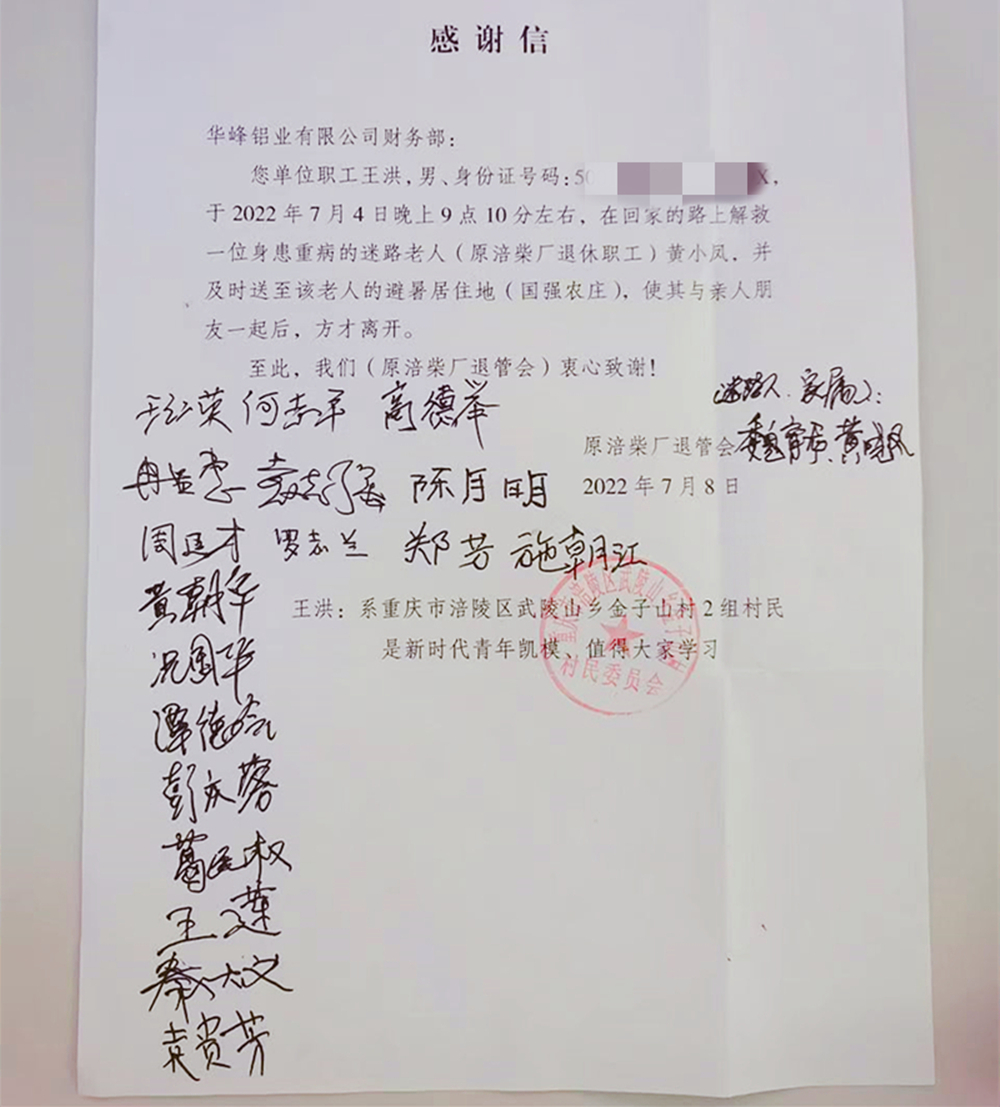 感谢信
华峰铝业有限公司财务部：
您单位职工王洪，男、身份证号码：50 X，
于 2022 年 7 月 4 日晚上 9 点 10 分左右，在回家的路上解救
一位身患重病的迷路老人（原涪柴厂退休职工）黄小凤，并
及时送至该老人的避暑居住地（国强农庄），使其与亲人朋
友一起后，方才离开。
至此，我们（原涪柴厂退管会）衷心致谢！
（迷路人、家属）：
何孝平 高德举
原涪柴厂退管会
黄晓凤
陈月明
2022 年 7 月 8 日
周廷才 罗志兰 郑芳 施朝江
黄朝华
王洪：系重庆市涪陵区武陵山乡金子山村 2 组村民
是新时代青年凯模、值得大家学习
重庆市涪陵区武陵山乡金子山村
村民委员会
况国华
谭德
彭
葛 权
王莲
秦大文
袁贵芳